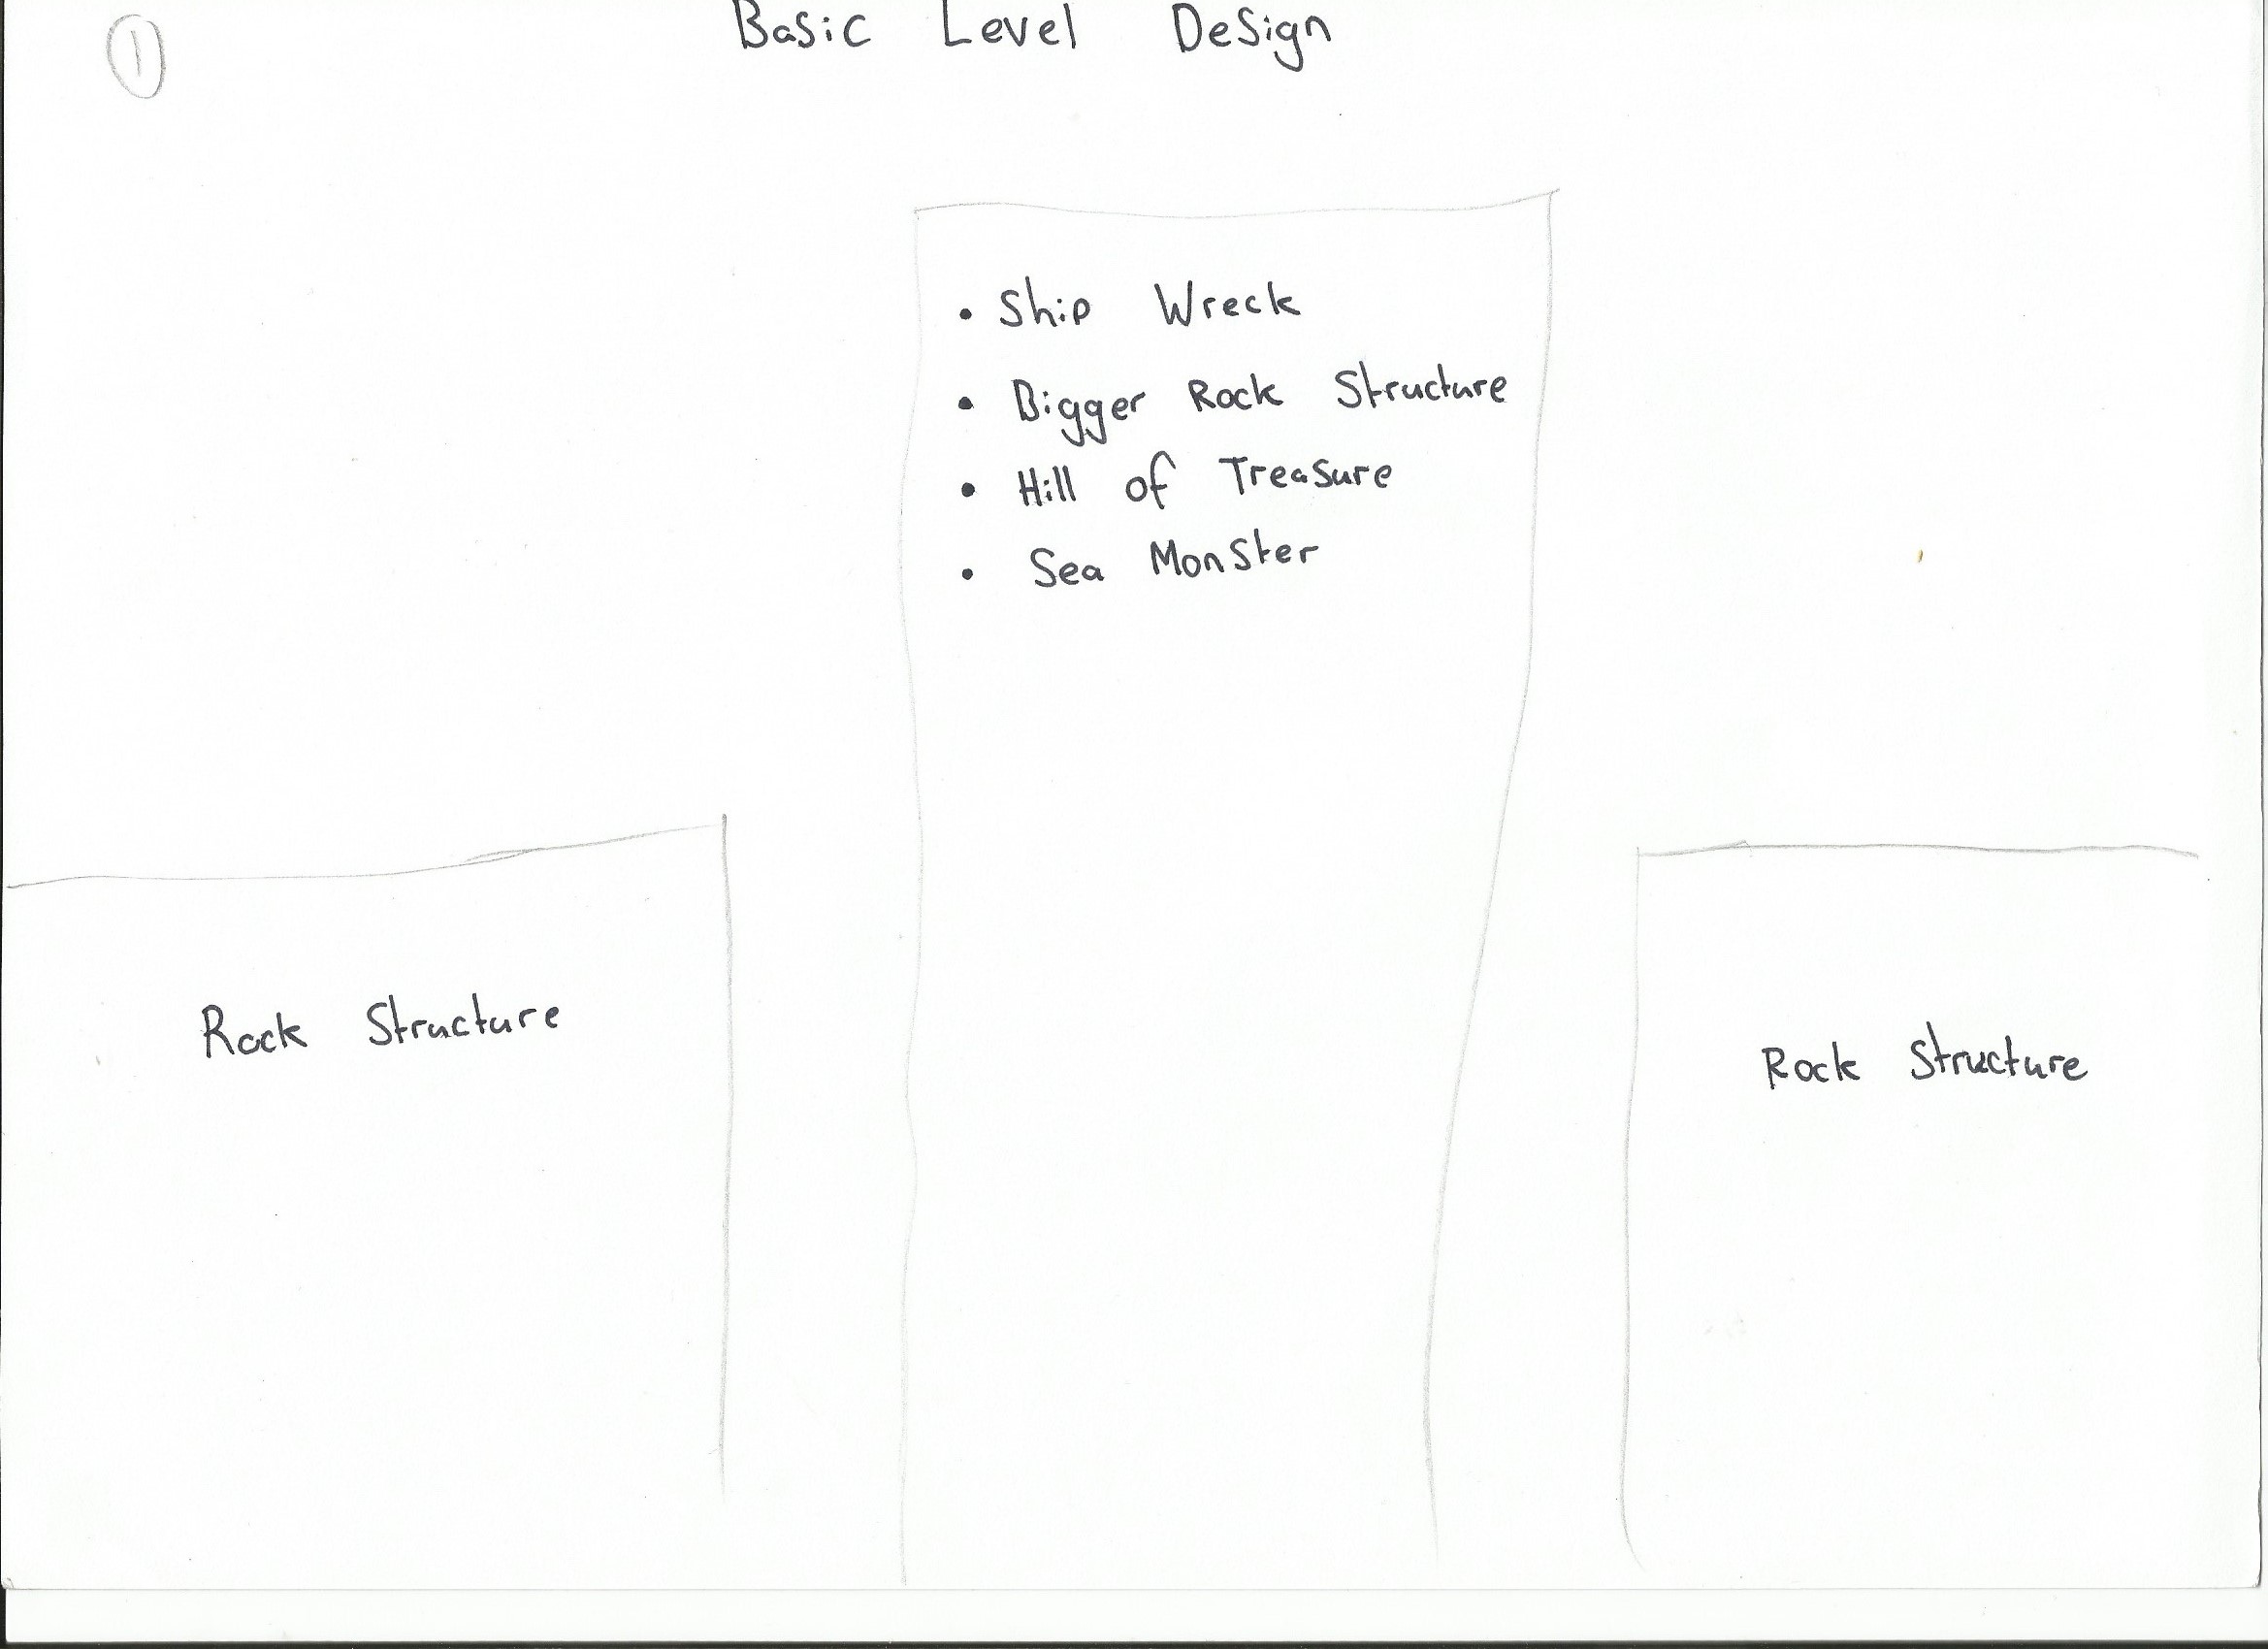 1
Basic Level Design
• Ship Wreck
• Bigger Rock Structure
• Hill of Treasure
• Sea Monster
Rock Structure
Rock Structure